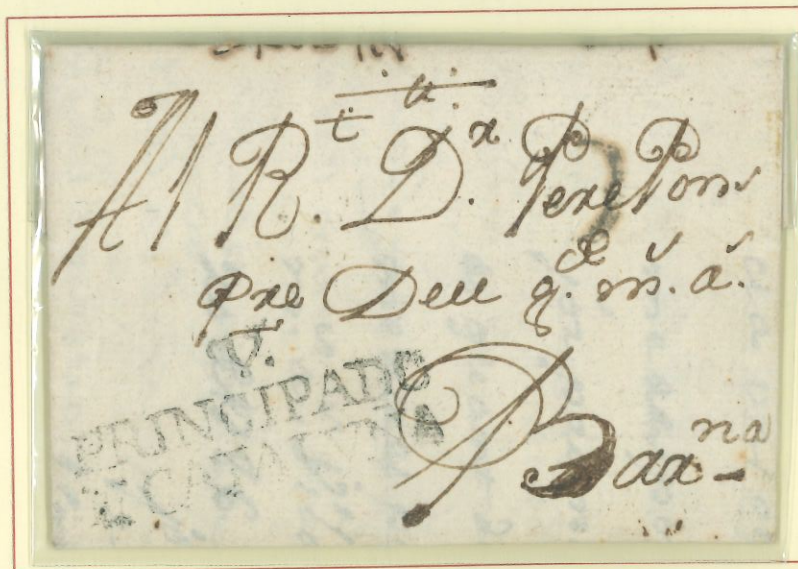 Al R.t D.r Pere Pons
pre Deu q.e m.s a.s
V.
PRINCIPADO
CATALUÑA
Barna